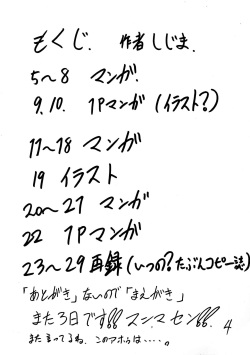 もくじ. 作者 しじま.
5〜8 マンガ.
9.10. 1Pマンガ(イラスト?)
11〜18 マンガ
19 イラスト
20〜21 マンガ
22 1Pマンガ
23〜29 再録(いつの?たぶんコピー誌)
「あとがき」ないので「まえがき」
また3日です!!スンマセン!!.
また言ってるね、このアホゥは・・・・。
4